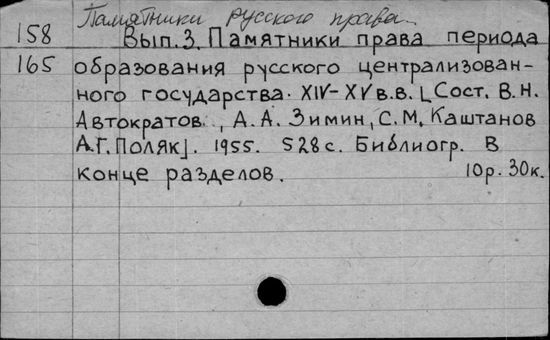 Памятники русского права.
158 Вып.3. Памятники права периода
165 образования русского централизован-
ного государства. XIV-XV в.в. [Сост. В.Н.
Автократов, А.А. Зимин, С.М. Каштанов
А.Г. Поляк]. 1955. 528 с. Библиогр. в
конце разделов. 10р. 30к.